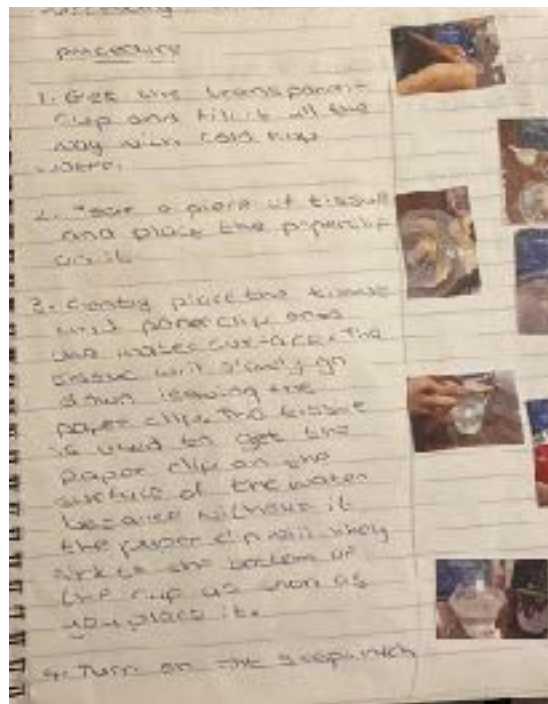 procedure
1. Get the transparent
cup and fill it all the
way with cold tap
water.
2. Tear a piece of tissue
and place the paperclip
on it
3. Gently place the tissue
and paperclip onto
the water surface. The
tissue will slowly go
down leaving the
paper clip. The tissue
is used to get the
paper clip on the
surface of the water
because without it
the paper clip will likely
sink to the bottom of
the cup as soon as
you place it.
4. Turn on the stopwatch